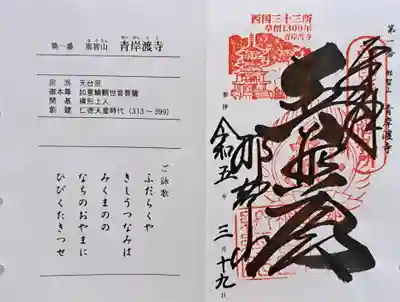 第一番 那智山 青岸渡寺
なちさん せいがんとじ
宗派 天台宗
御本尊 如意輪観世音菩薩
開基 裸形上人
創建 仁徳天皇時代（313～399）
ご詠歌
ふだらくや
きしうつなみは
みくまのの
なちのおやまに
ひびくたきつせ
西国三十三所
草創1300年
青岸渡寺
奉拝
令和五年 三月十九
那智山
青岸渡寺